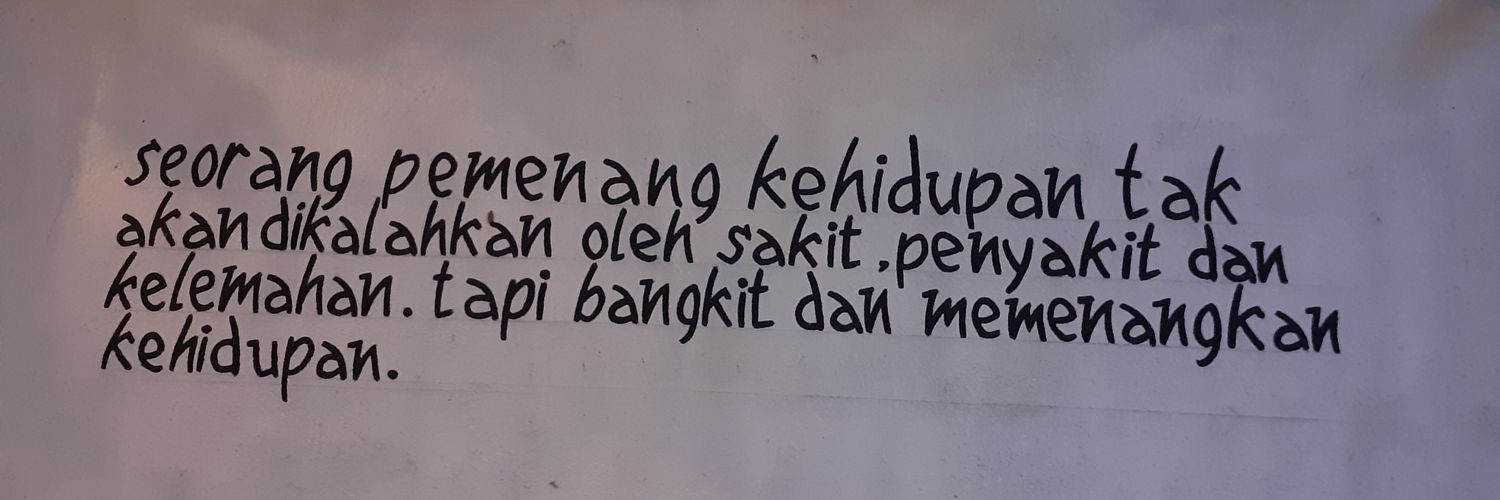 seorang pemenang kehidupan tak
akan dikalahkan oleh sakit, penyakit dan
kelemahan. tapi bangkit dan memenangkan
kehidupan.